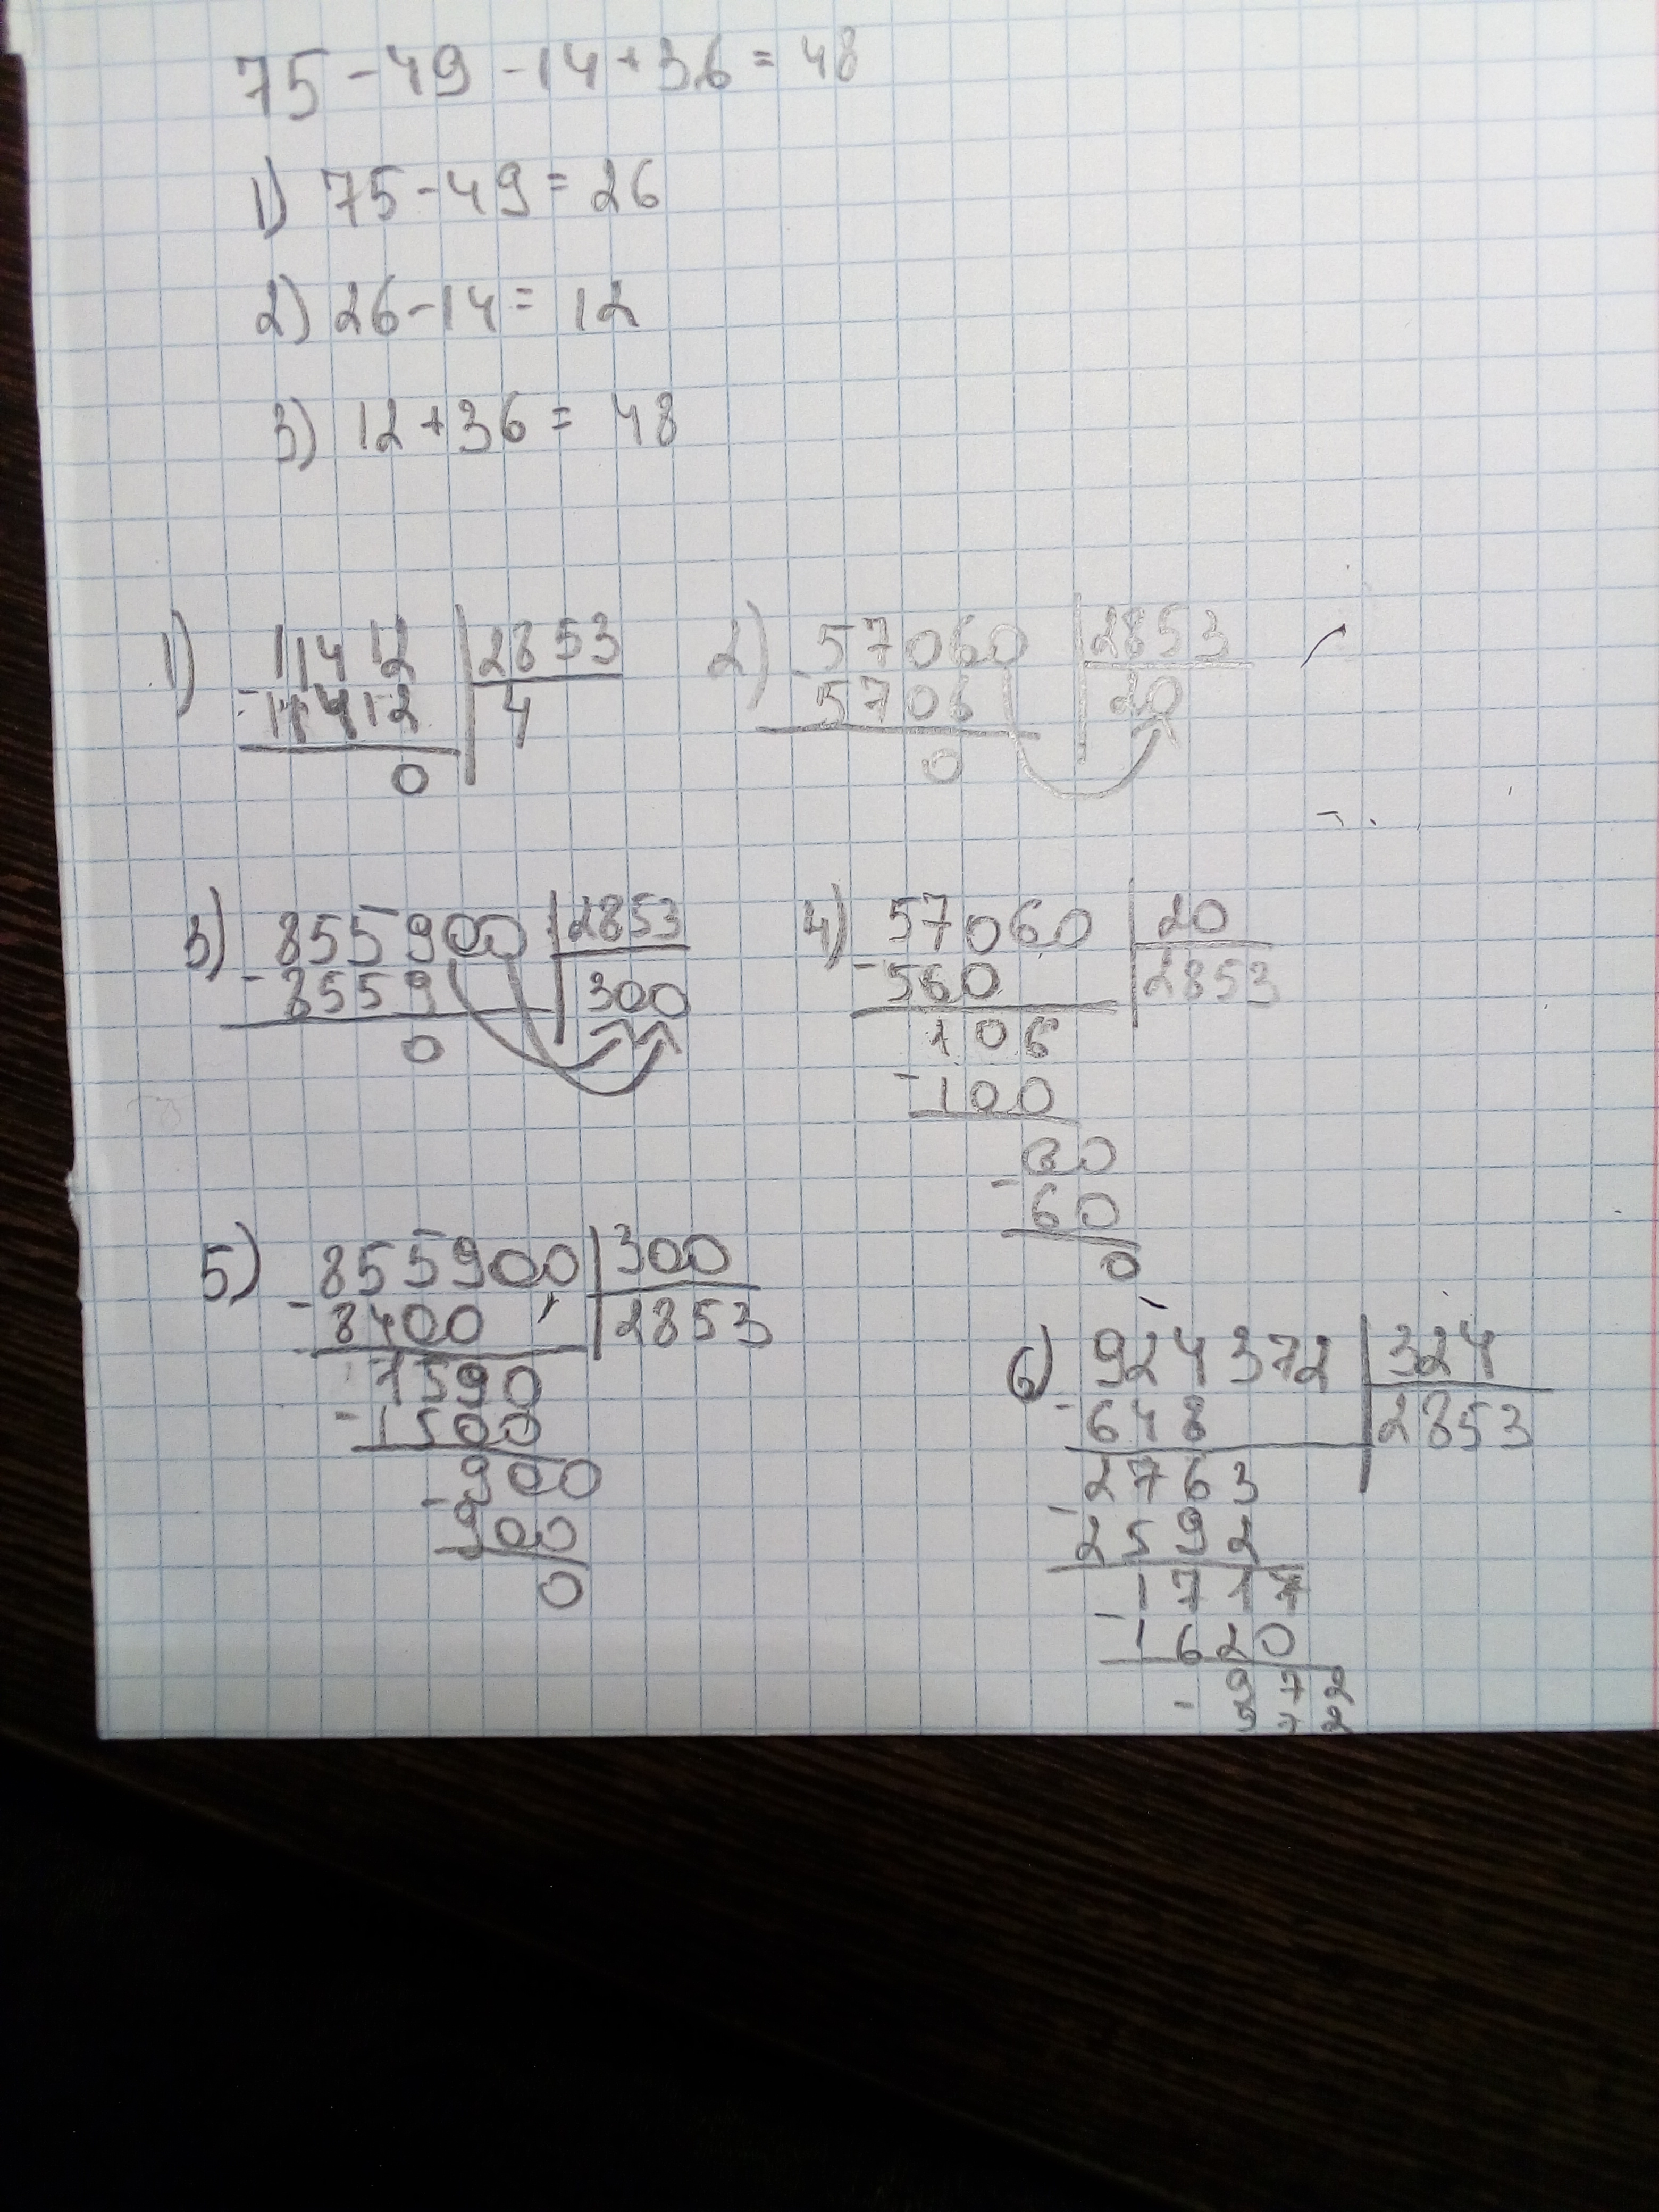 75-49-14+36=48
1) 75-49=26
2) 26-14=12
3) 12+36=48
1) 11412 | 2853
-11412 | 4
0
2) 57060 | 2853
-5706 | 20
0
3) 855900 | 2853
-8559 | 300
0
4) 57060 | 20
-560 | 2853
106
-100
60
-60
0
5) 855900 | 300
-8400 | 2853
1590
-1500
900
-900
0
6) 924372 | 324
-648 | 2853
2763
-2592
1717
-1620
972
-972